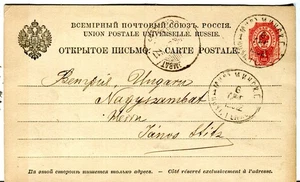 ВСЕМІРНЫЙ ПОЧТОВЫЙ СОЮЗЪ. РОССІЯ.
UNION POSTALE UNIVERSELLE. RUSSIE.
ОТКРЫТОЕ ПИСЬМО. — CARTE POSTALE.
Ungarn
Nagyszombat
Herrn
János
На этой сторонѣ пишется только адресъ. — Côté réservé exclusivement à l'adresse.